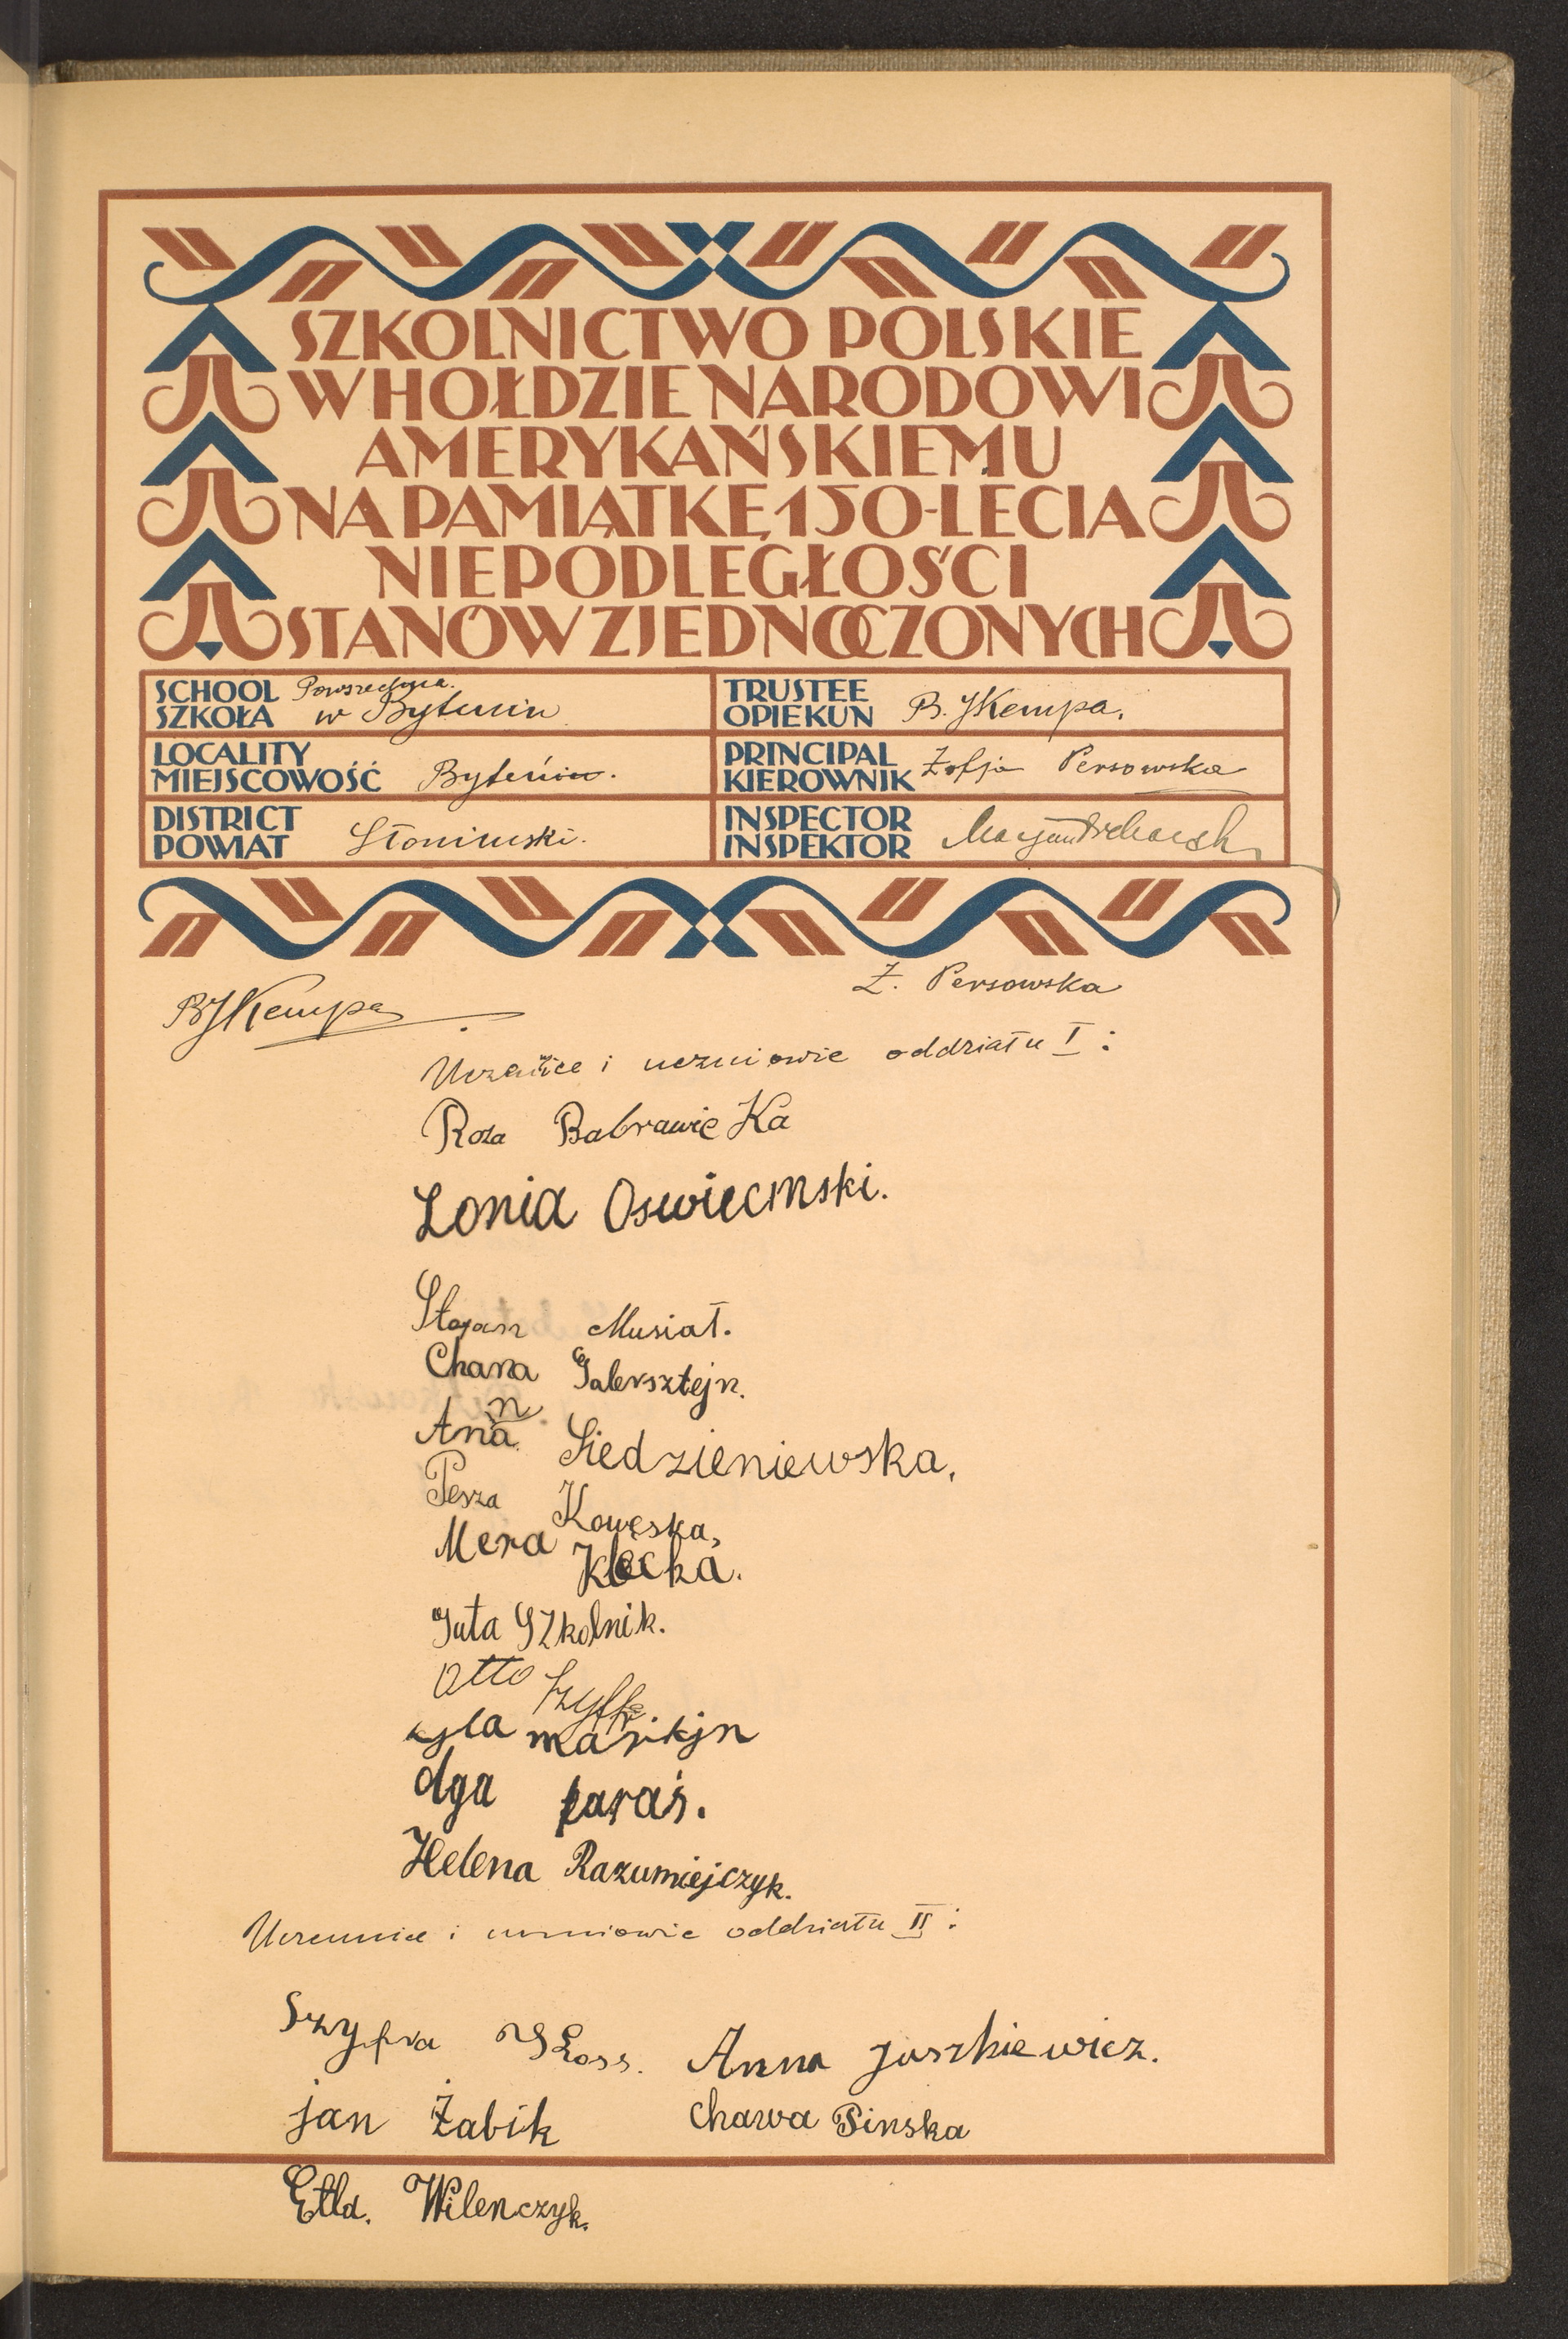 SZKOLNICTWO POLSKIE
W HOŁDZIE NARODOWI
AMERYKAŃSKIEMU
NA PAMIĄTKĘ 150-LECIA
NIEPODLEGŁOŚCI
STANÓW ZJEDNOCZONYCH
SCHOOL SZKOŁA Powszechna w Byteniu
TRUSTEE OPIEKUN B. J Kempa.
LOCALITY MIEJSCOWOŚĆ Byteniu.
PRINCIPAL KIEROWNIK Zofja Persowska
DISTRICT POWIAT Słonimski.
INSPECTOR INSPEKTOR
BJKempa
Z. Persowska
Uczenice i uczniowie oddziału I:
Roza Babrawicka
Lonia Oswiecmski.
Stefan Musiał.
Chana Galersztejn.
Anna Siedzieniewska,
Pesza Kowęska,
Mera Klecka.
Guta SZkolnik.
Otto
marikjn
Olga Paraś.
Helena Razumiejczyk.
Uczennice i uczniowie oddziału II:
Szyfra
Anna Juszkiewicz.
jan Żabik
Chawa Pinska
Etla. Wilenczyk.